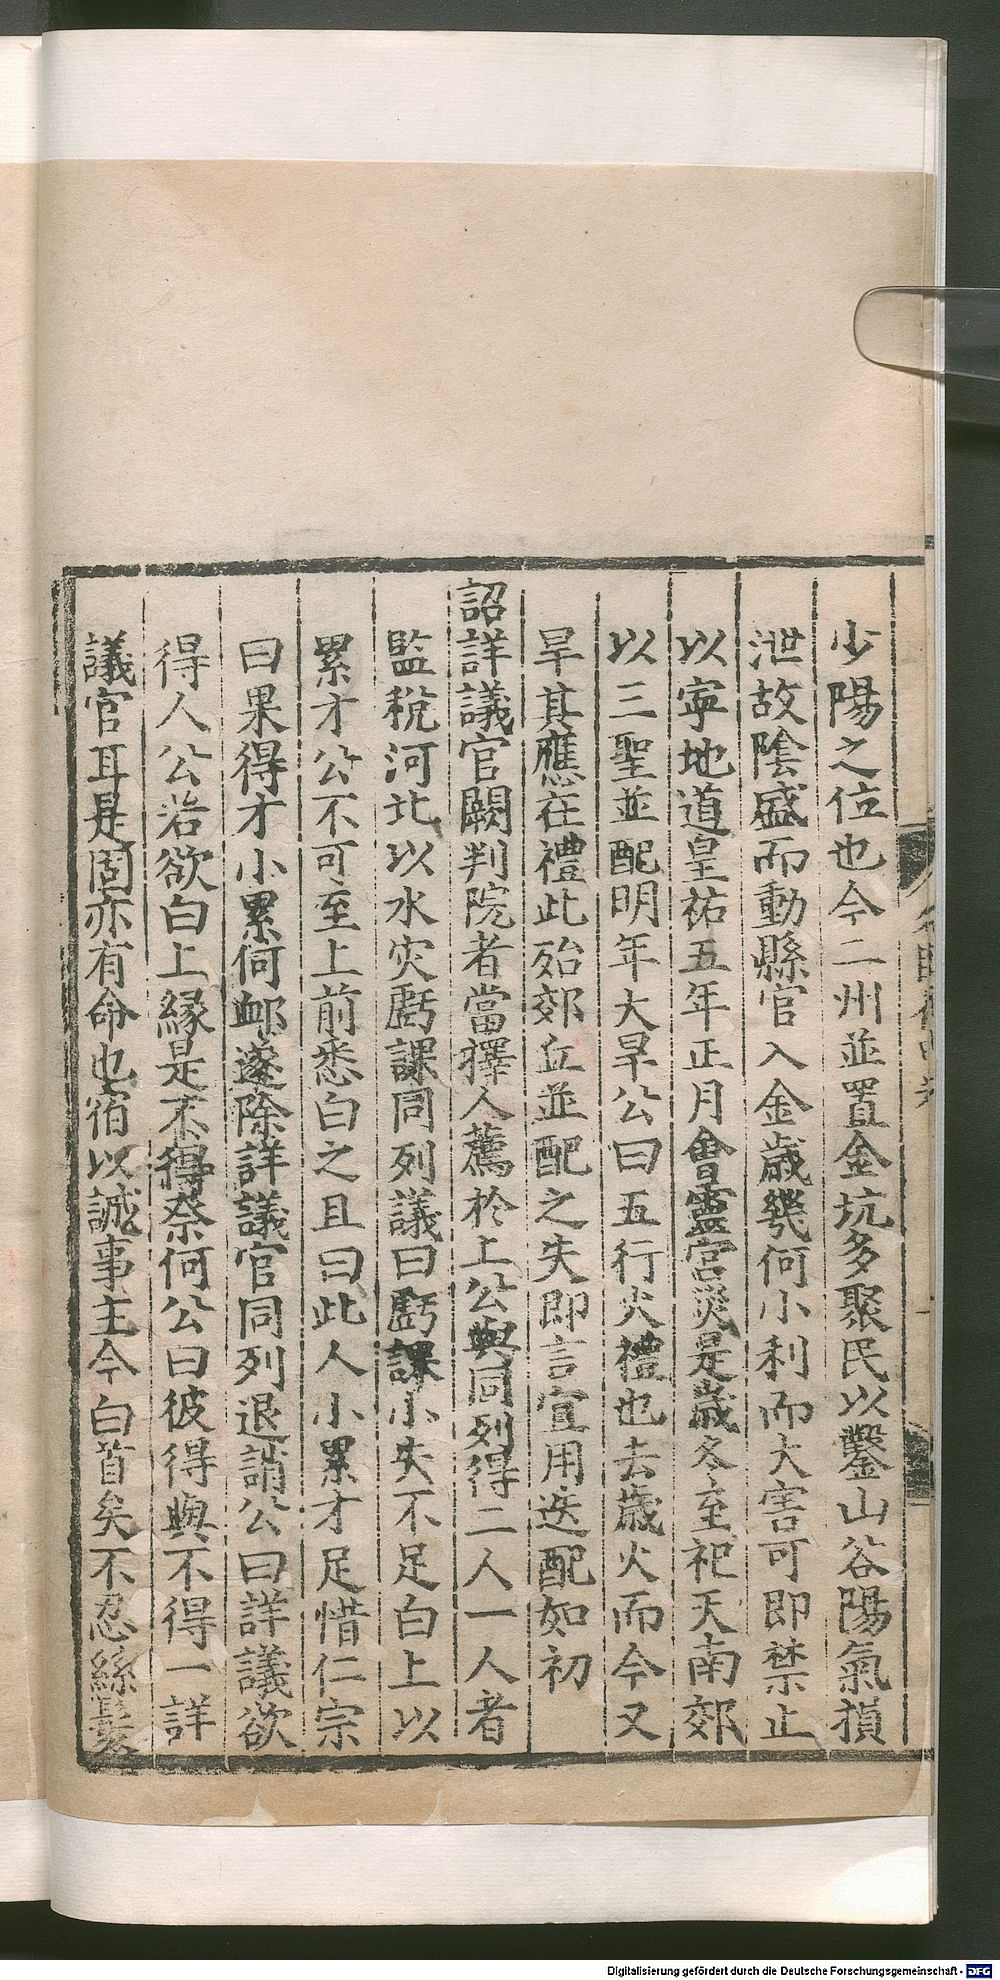 少陽之位也今二州並置金坑多聚民以鑿山谷陽氣損
泄故陰盛而動縣官入金歲幾何小利而大害可即禁止
以寧地道皇祐五年正月會靈宮災是歲冬至祀天南郊
以三聖並配明年大旱公曰五行火禮也去歲火而今又
旱其應在禮此殆郊丘並配之失即言宜用迭配如初
詔詳議官闕判院者當擇人薦於上公與同列得二人一人者
監稅河北以水灾虧課同列議曰虧課小失不足白上以
累才公不可至上前悉白之且曰此人小累才足惜仁宗
曰果得才小累何䘏遂除詳議官同列退誚公曰詳議欲
得人公若欲白上緣是不得柰何公曰彼得與不得一詳
議官耳是固亦有命也宿以誠事主今白首矣不忍絲髮
Digitalisierung gefördert durch die Deutsche Forschungsgemeinschaft - DFG